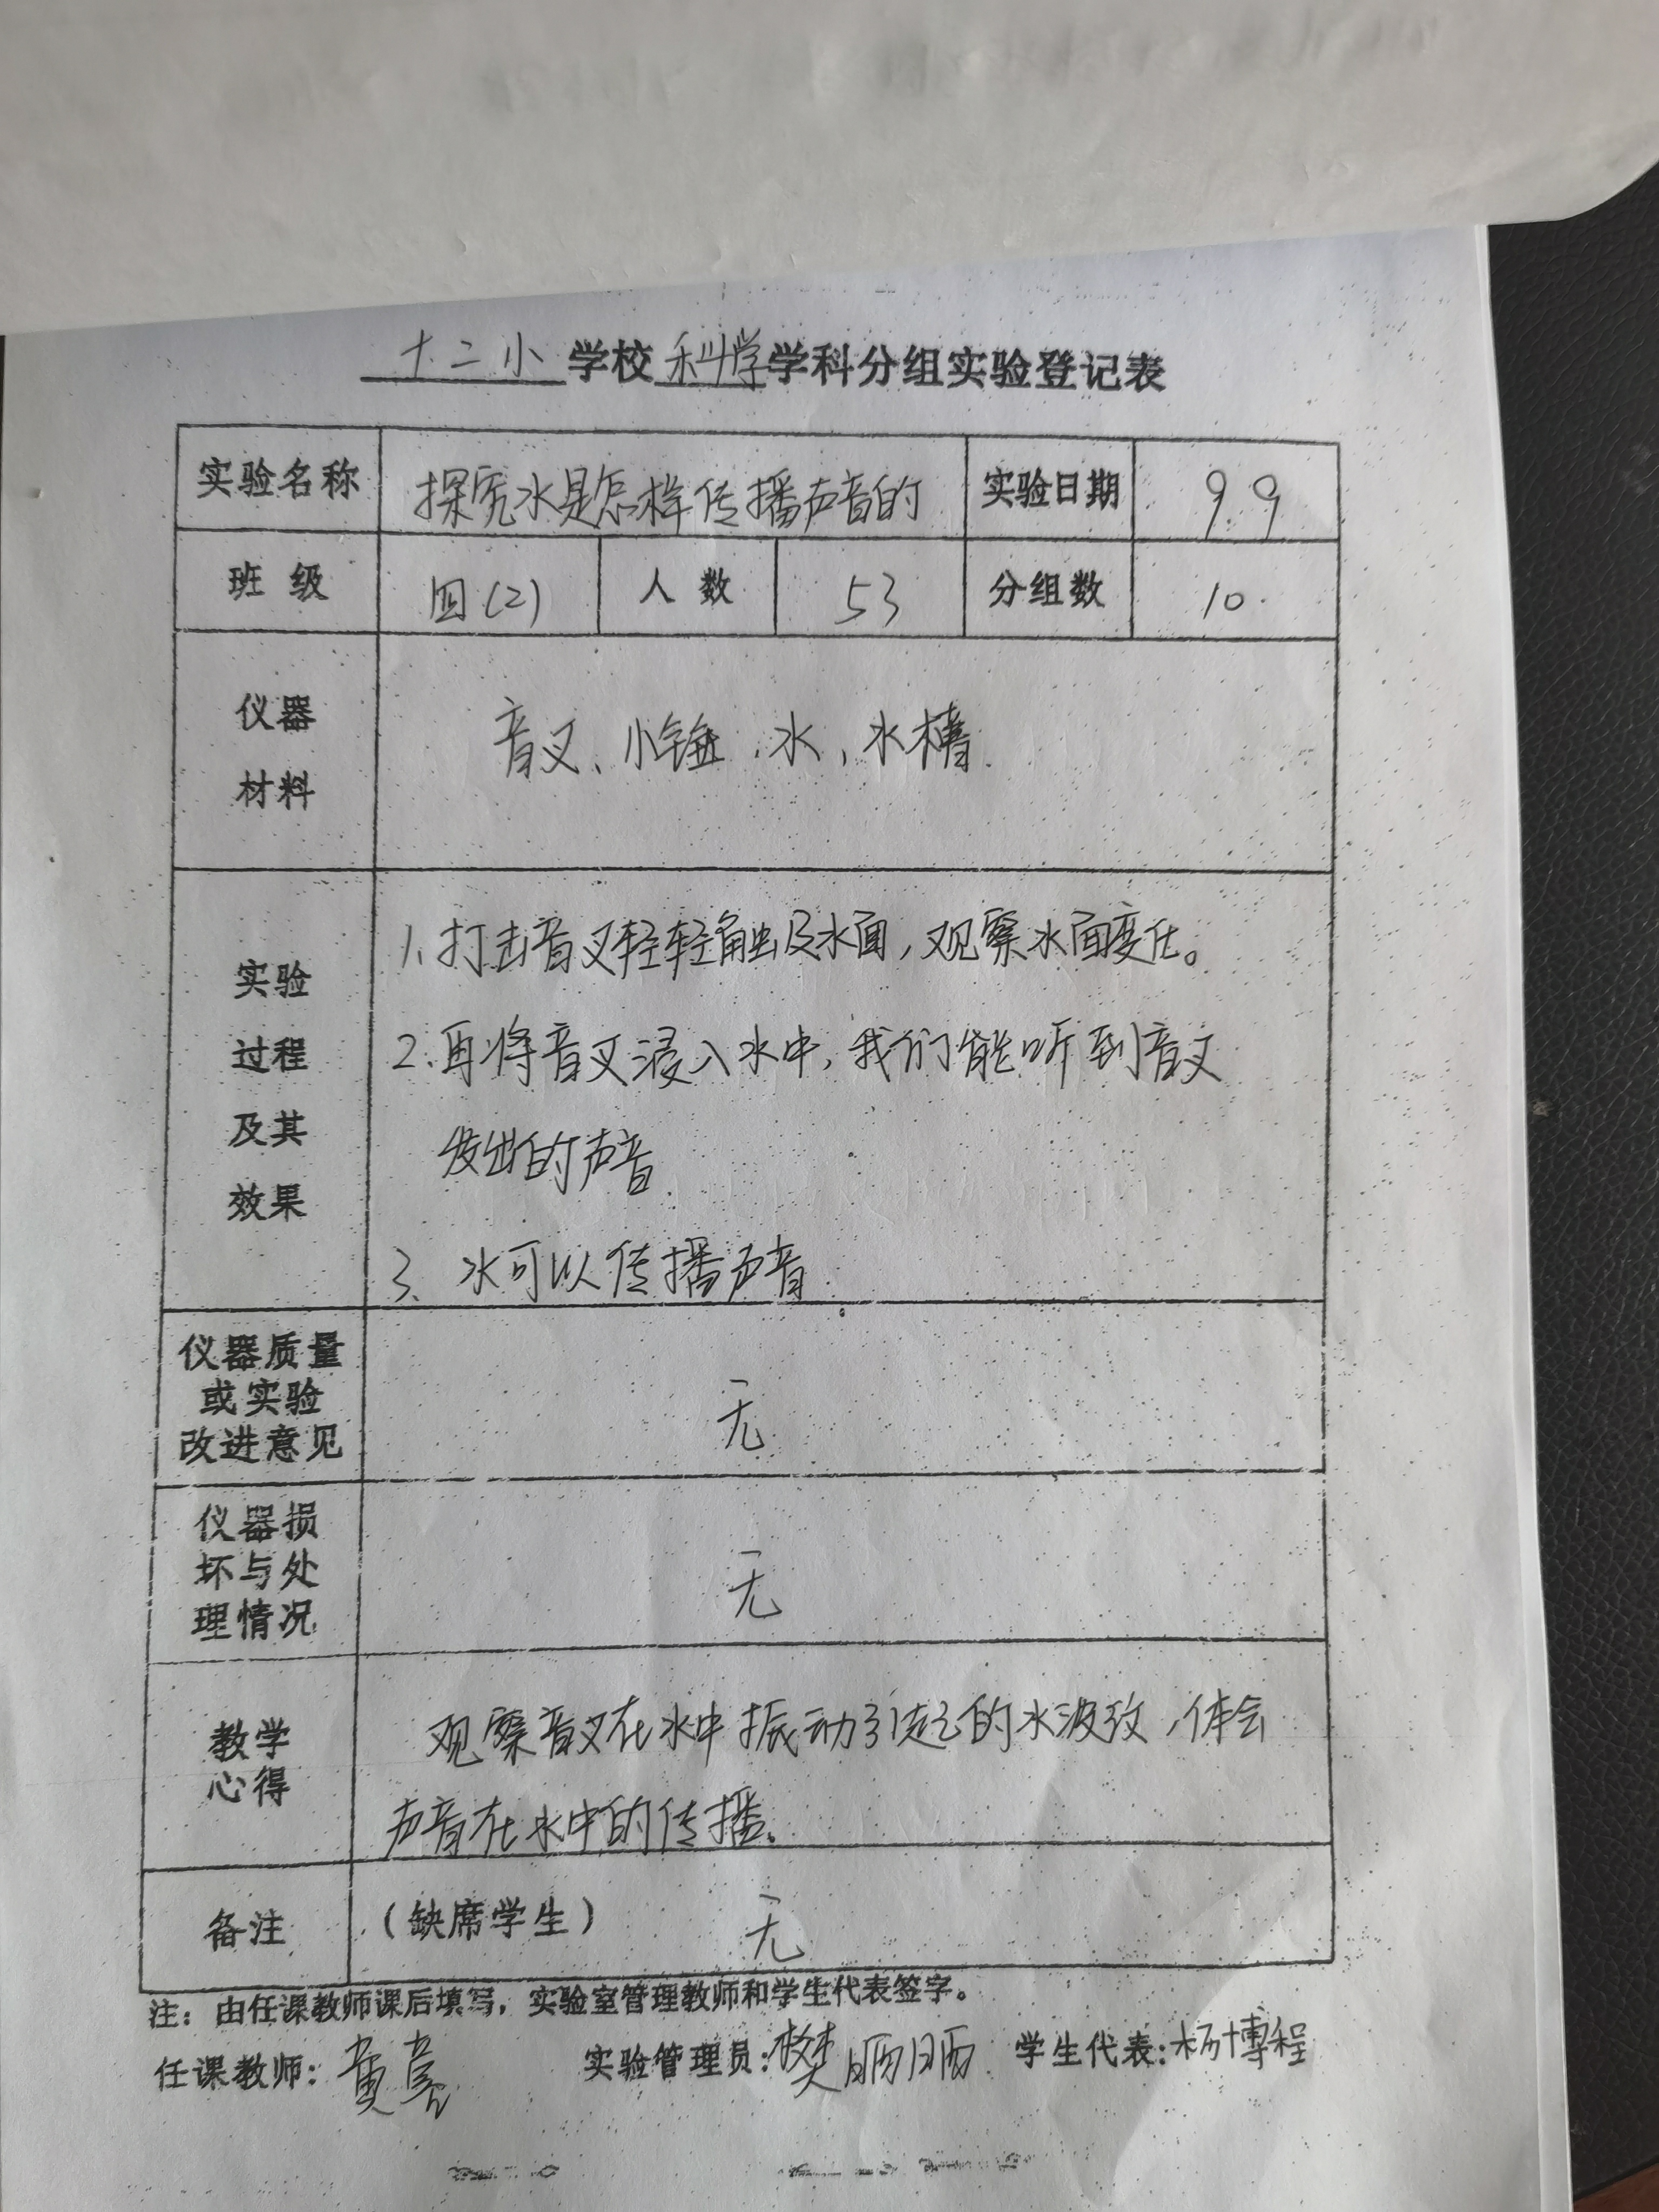 十二小学校科学学科分组实验登记表
实验名称 探究水是怎样传播声音的 实验日期 9.9
班级 四(2) 人数 53 分组数 10
仪器
材料
音叉、小锤、水、水槽.
实验
过程
及其
效果
1、打击音叉轻轻触及水面,观察水面变化。
2.再将音叉浸入水中,我们能听到音叉
发出的声音.
3、水可以传播声音
仪器质量
或实验
改进意见
无
仪器损
坏与处
理情况
无
教学
心得
观察音叉在水中振动引起的水波纹,体会
声音在水中的传播。
备注 (缺席学生) 无
注:由任课教师课后填写,实验室管理教师和学生代表签字。
任课教师: 实验管理员:樊丽丽 学生代表:杨博程